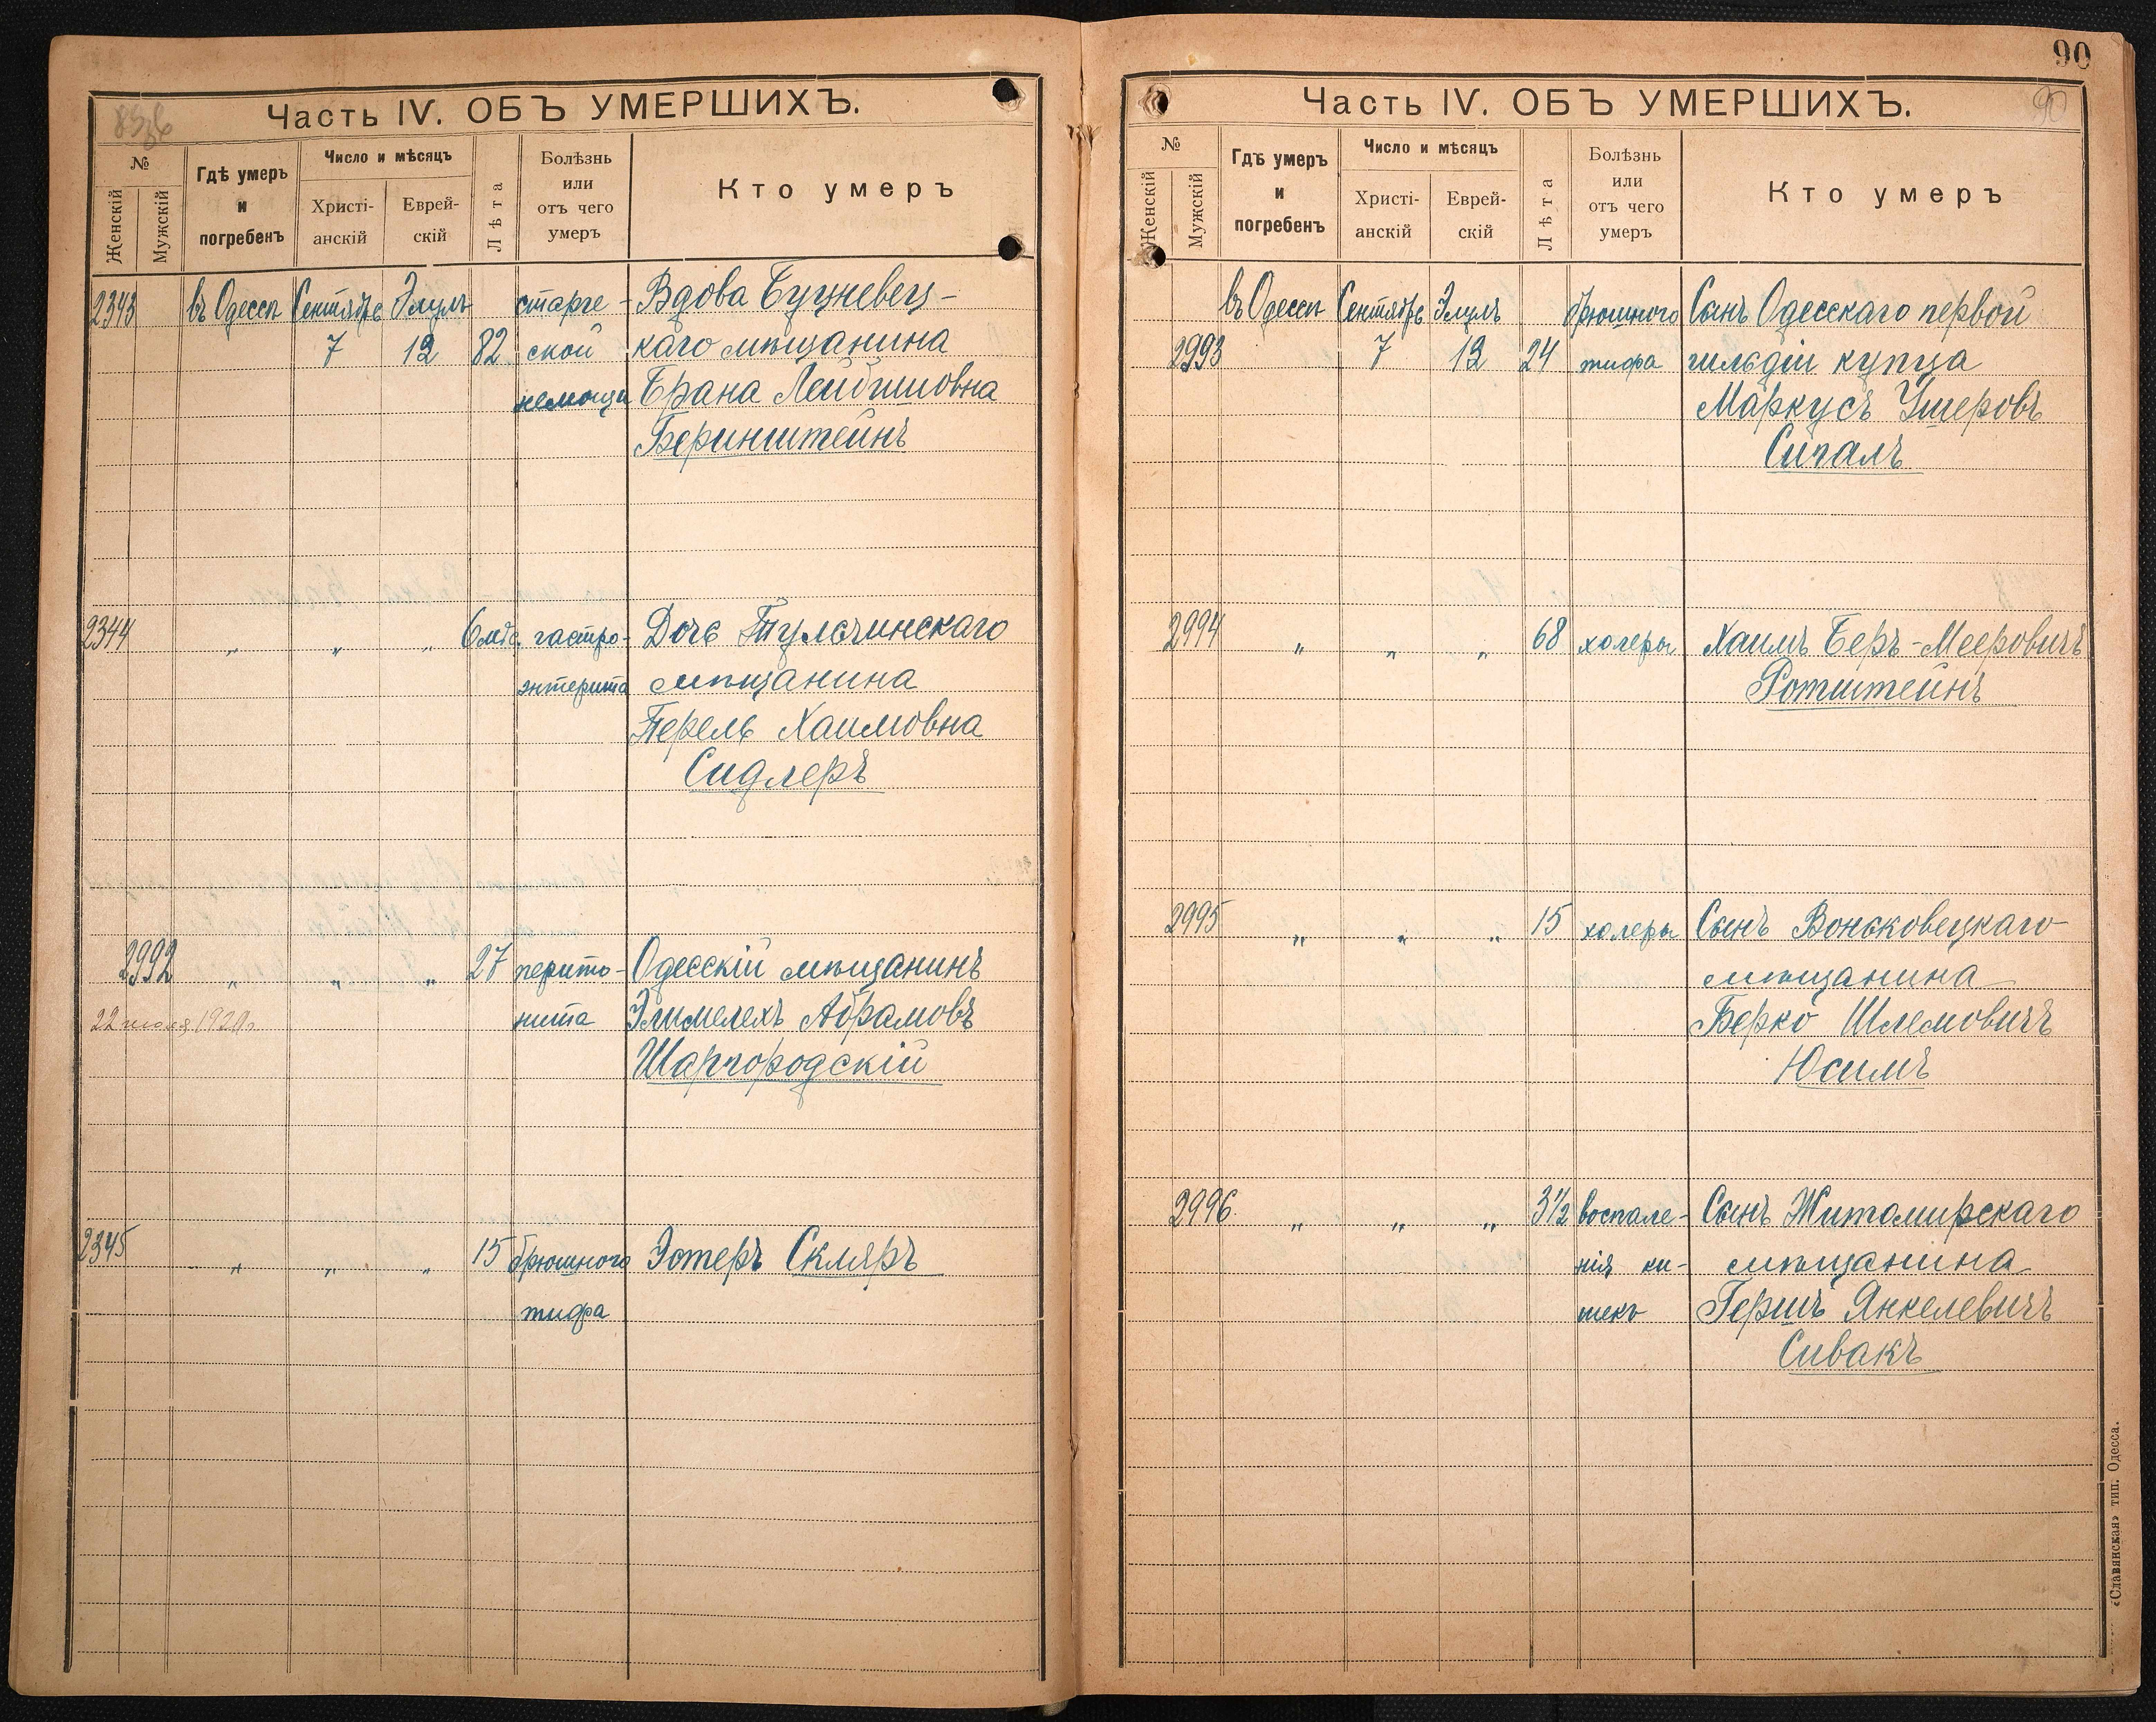 Часть IV. ОБЪ УМЕРШИХЪ.
№
Женскій
Мужскій
Гдѣ умеръ
и
погребенъ
Число и мѣсяцъ
Христі-
анскій
Еврей-
скій
Лѣта
Болѣзнь
или
отъ чего
умеръ
Кто умеръ
2343 въ Одессѣ Сентябрь Элулъ старче- Вдова
7 12 82 ской каго мѣщанина
немощи Брана Лейбишовна
Беринштейнъ
2344 „ „ „ 6 мѣс. гастро- Дочь Тульчинскаго
энтерита мѣщанина
Перель Хаимовна
Сидлеръ
2992 „ „ „ 27 перито- Одесскій мѣщанинъ
22 июля 1920г. нита Элимелехъ Абрамовъ
Шаргородскій
2345 „ „ „ 15 брюшного Эстеръ Скляръ
тифа
90
Часть IV. ОБЪ УМЕРШИХЪ.
90
№
Женскій
Мужскій
Гдѣ умеръ
и
погребенъ
Число и мѣсяцъ
Христі-
анскій
Еврей-
скій
Лѣта
Болѣзнь
или
отъ чего
умеръ
Кто умеръ
въ Одессѣ Сентябрь Элулъ брюшного Сынъ Одесскаго первой
2993 7 12 24 тифа гильдіи купца
Маркусъ Ушеровъ
Сигалъ
2994 „ „ „ 68 холеры Хаимъ Беръ-Мееровичъ
Ротштейнъ
2995 „ „ „ 15 холеры Сынъ Воньковецкаго
мѣщанина
Берко Шлемовичъ
Юсимъ
2996. „ „ „ 3½ воспале- Сынъ Житомирскаго
нія ки- мѣщанина
шекъ Гершъ Янкелевичъ
Сивакъ
«Славянская» тип. Одесса.